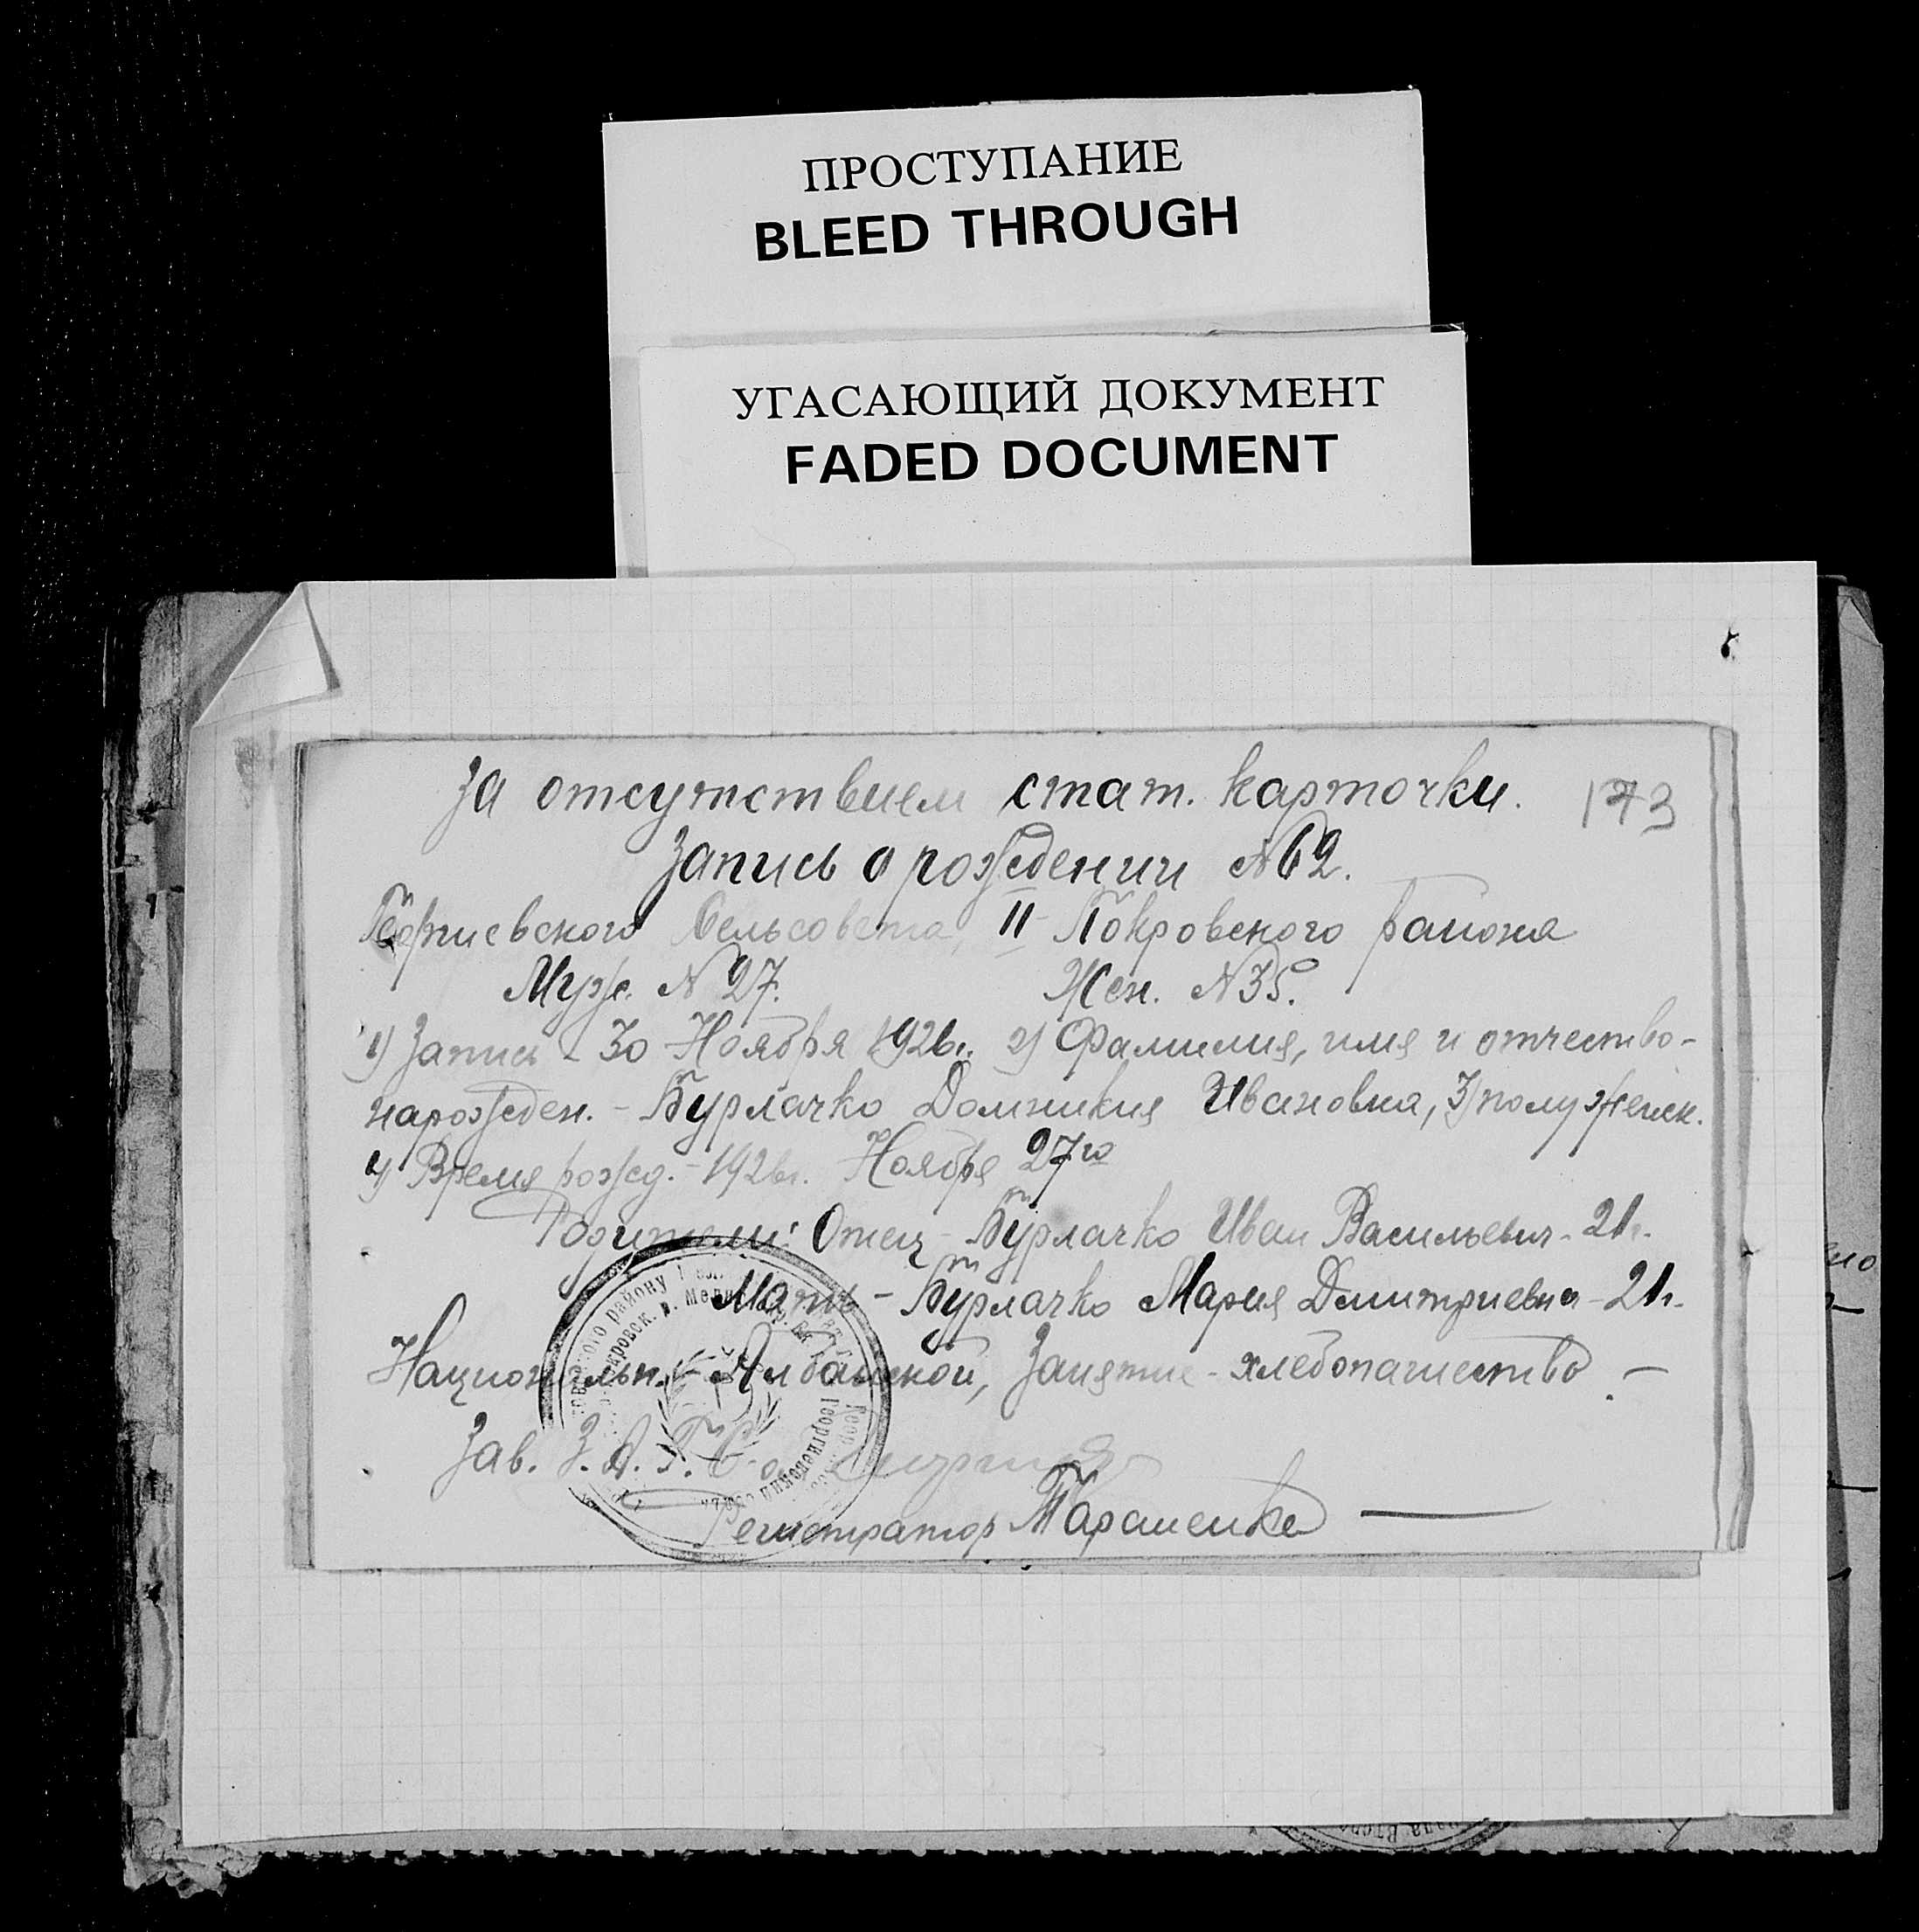 ПРОСТУПАНИЕ
BLEED THROUGH
УГАСАЮЩИЙ ДОКУМЕНТ
FADED DOCUMENT
За отсутствием стат. карточки. 173
Запись о рождении №62.
Георгиевского Сельсовета, II Покровского района
Муж. № 27. Жен. № 35.
1) Запись - 30 Ноября 1926г. 2) Фамилия, имя и отчество-
нарожден. - Бурлачко Домникия Ивановна, 3) полу женск.
4) Время рожд. - 1926г. Ноября 27го
Родители: Отец - Бурлачко Иван Васильевич - 21г.
Мать - Бурлачко Мария Дмитриевна - 21г.
Национальн. - Албанской, Занятие - хлебопашество. -
Зав. З.А.Г.С.
Регистратор Тараненко